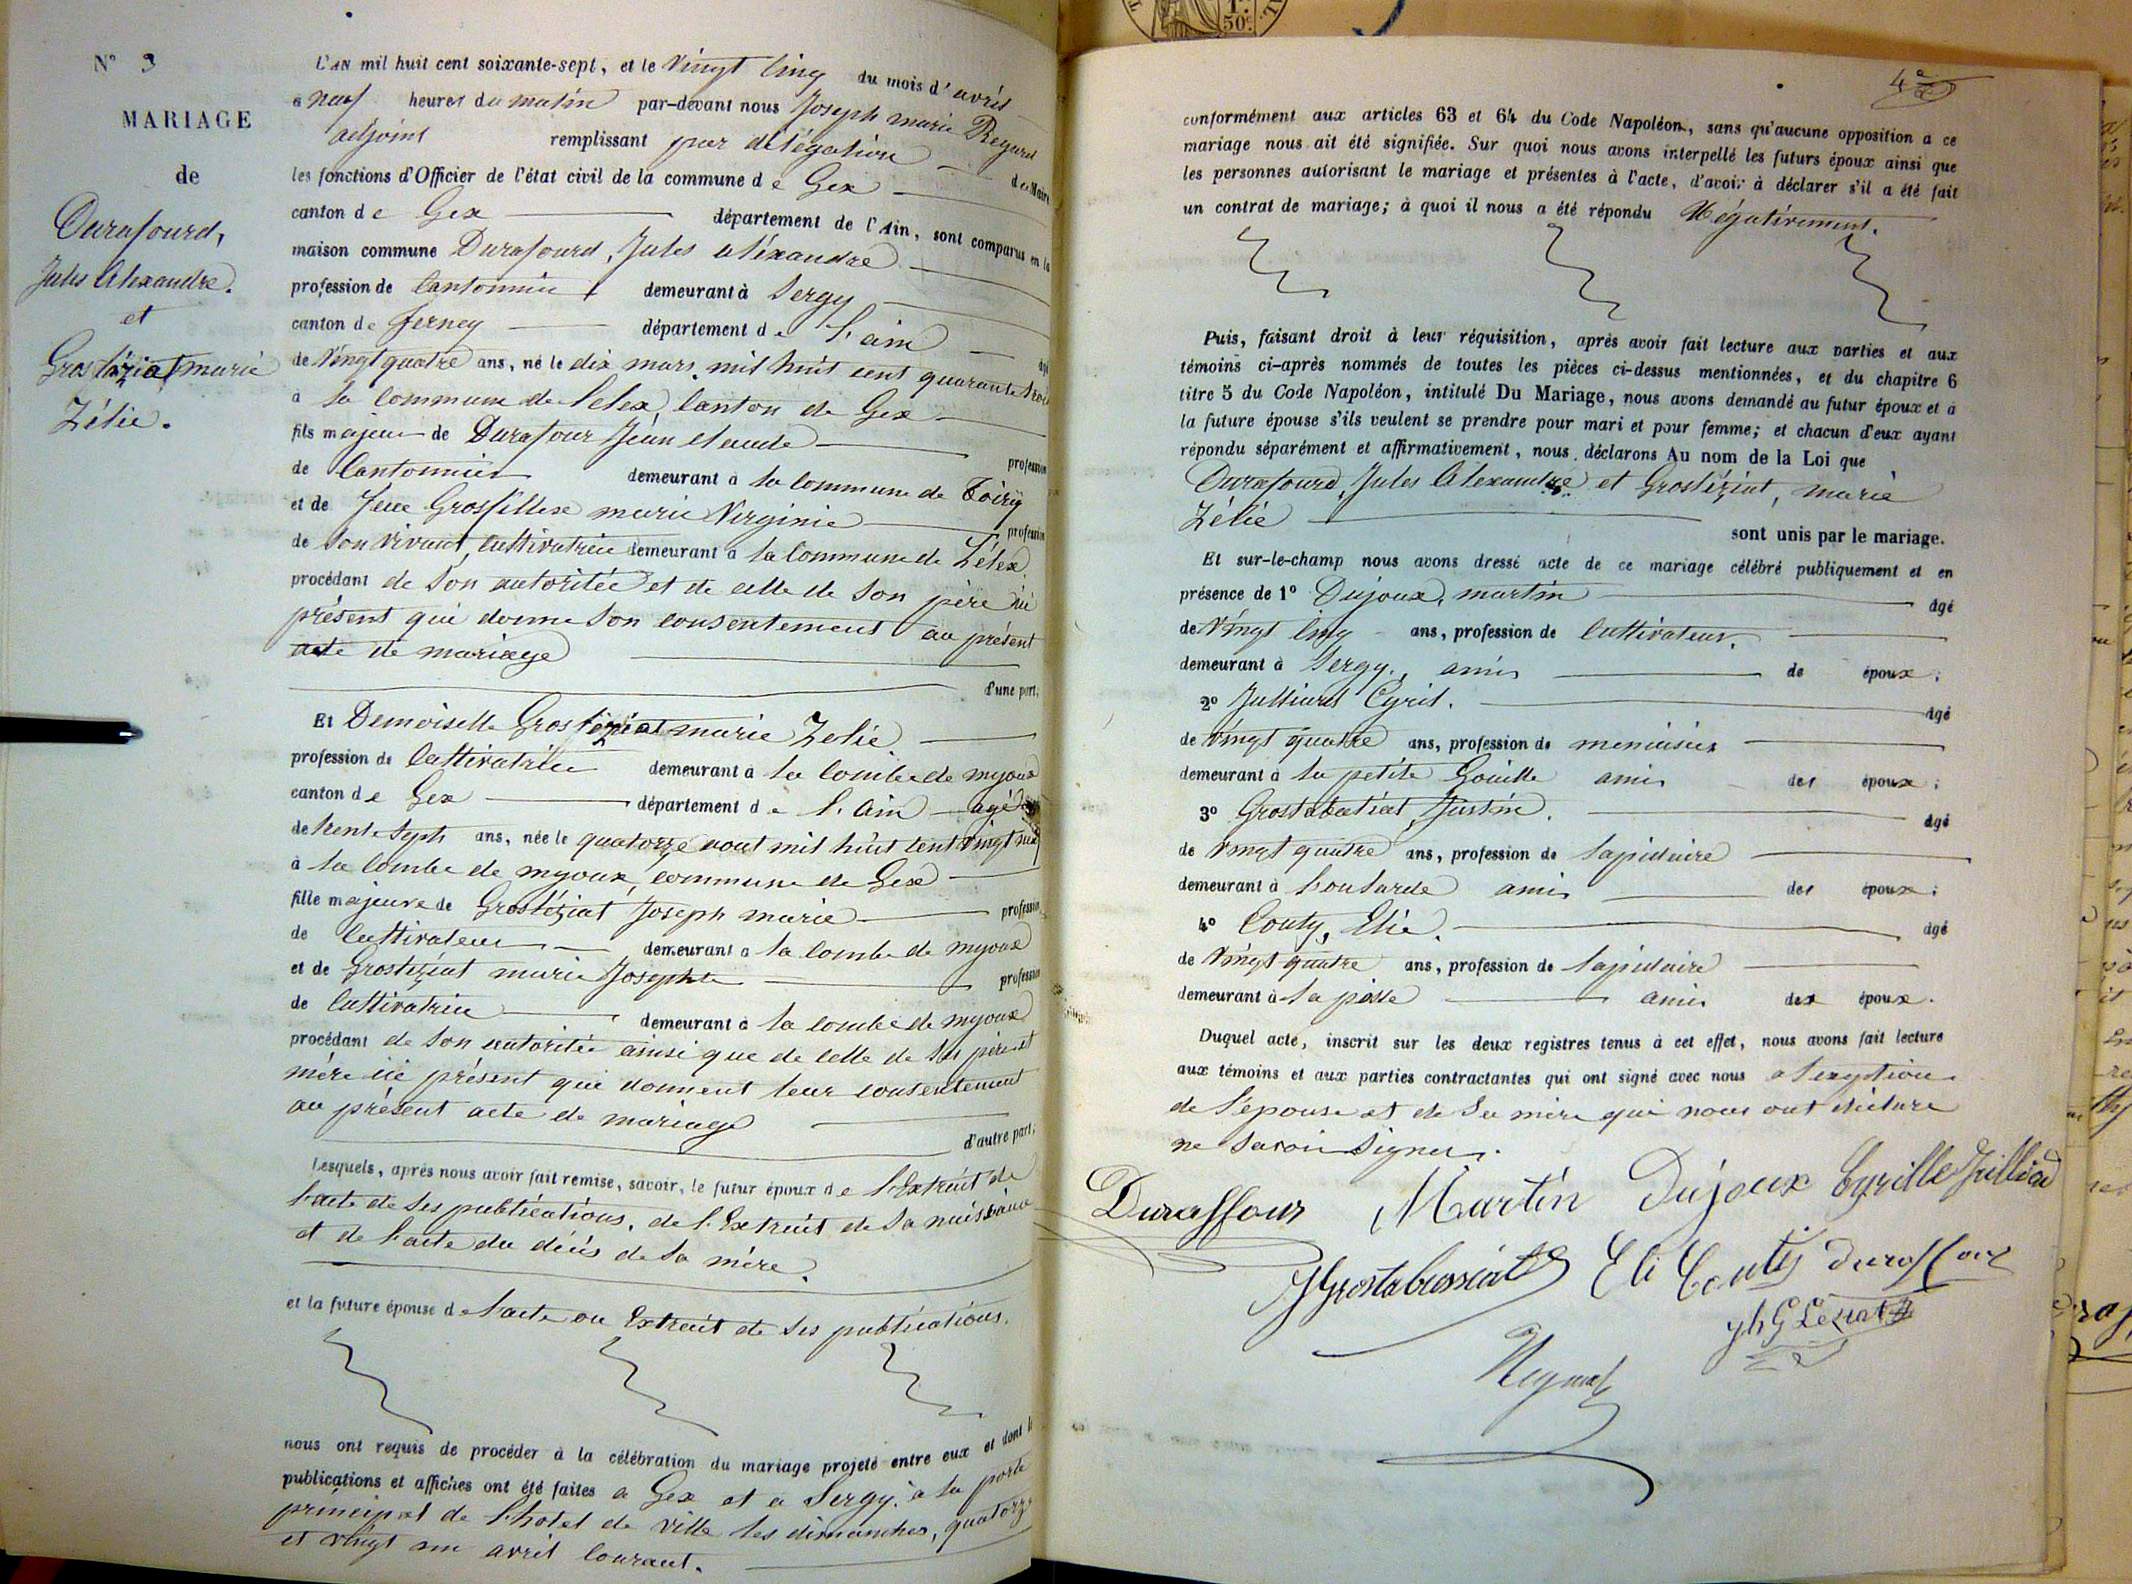 N° 3
MARIAGE
de
Durafourd,
Jules Alexandre.
et
Grostéziat marie
Zélie.
L'AN mil huit cent soixante-sept, et le vingt cinq du mois d'avril
à neuf heures du matin par-devant nous Joseph marie Regard
adjoint remplissant par délégation du Maire
les fonctions d'Officier de l'état civil de la commune de Gex
canton de Gex département de l'Ain, sont comparus en la
maison commune Durafourd, Jules aléxandre
profession de Cantonnier demeurant à Sergy
canton de ferney département de l'ain agé
de vingt quatre ans, né le dix mars mil huit cent quarante trois
à la commune de Lelex, Canton de Gex
fils majeur de Durafour Jean claude profession
de Cantonnier demeurant à la commune de Toiry
et de feue Grosfillex marie Virginie profession
de son vivant, cultivatrice demeurant à la Commune de Lélex
procédant de son autoritée et de celle de son père ici
présent qui donne son consentement au présent
acte de mariage
d'une part;
Et Demoiselle Grostéziat marie Zélie
profession de Cultivatrice demeurant à la Combe de myoux
canton de Gex département de l'ain agée
de trente sept ans, née le quatorze aout mil huit cent vingt neuf
à la Combe de myoux, commune de Gex
fille majeure de Grostéziat Joseph marie profession
de Cultivateur demeurant à la combe de myoux
et de Grostéziat marie Josephte profession
de Cultivatrice demeurant à la combe de myoux
procédant de son autoritée ainsi que de celle de ses père et
mère ici présent qui donnent leur consentement
au présent acte de mariage
d'autre part;
Lesquels, après nous avoir fait remise, savoir, le futur époux de l'Extrait de
l'acte de ses publications, de l'Extrait de sa naissance
et de l'acte du décès de sa mère.
et la future épouse de l'acte ou Extrait de ses publications.
nous ont requis de procéder à la célébration du mariage projeté entre eux et dont les
publications et affiches ont été faites à Gex et à Sergy, à la porte
principal de l'hotel de ville les dimanches, quatorze
et vingt un avril courant.
4e
conformément aux articles 63 et 64 du Code Napoléon, sans qu'aucune opposition a ce
mariage nous ait été signifiée. Sur quoi nous avons interpellé les futurs époux ainsi que
les personnes autorisant le mariage et présentes à l'acte, d'avoir à déclarer s'il a été fait
un contrat de mariage; à quoi il nous a été répondu Négativement.
Puis, faisant droit à leur réquisition, après avoir fait lecture aux parties et aux
témoins ci-après nommés de toutes les pièces ci-dessus mentionnées, et du chapitre 6
titre 5 du Code Napoléon, intitulé Du Mariage, nous avons demandé au futur époux et à
la future épouse s'ils veulent se prendre pour mari et pour femme; et chacun d'eux ayant
répondu séparément et affirmativement, nous déclarons Au nom de la Loi que
Durafourd, Jules Aléxandre et Grostéziat, marie
Zélie
sont unis par le mariage.
Et sur-le-champ nous avons dressé acte de ce mariage célébré publiquement et en
présence de 1° Dujoux, martin agé
de vingt cinq ans, profession de Cultivateur.
demeurant à Sergy, amis de époux;
2° Julliard Cyril. agé
de vingt quatre ans, profession de menuisier
demeurant à la petite Gouille amis des époux;
3° Grostabutiat, Justin. agé
de vingt quatre ans, profession de lapidaire
demeurant à amis des époux;
4° Couty, Elie. agé
de vingt quatre ans, profession de lapidaire
demeurant à la amis des époux.
Duquel acte, inscrit sur les deux registres tenus à cet effet, nous avons fait lecture
aux témoins et aux parties contractantes qui ont signé avec nous a l'exeption
de l'épouse et de sa mère qui nous ont déclaré
ne savoir signer.
Duraffour Martin Dujoux Cyrille Julliard
JGrostabussiat Eli Coutis duraffour
jh G Leziat
Regard